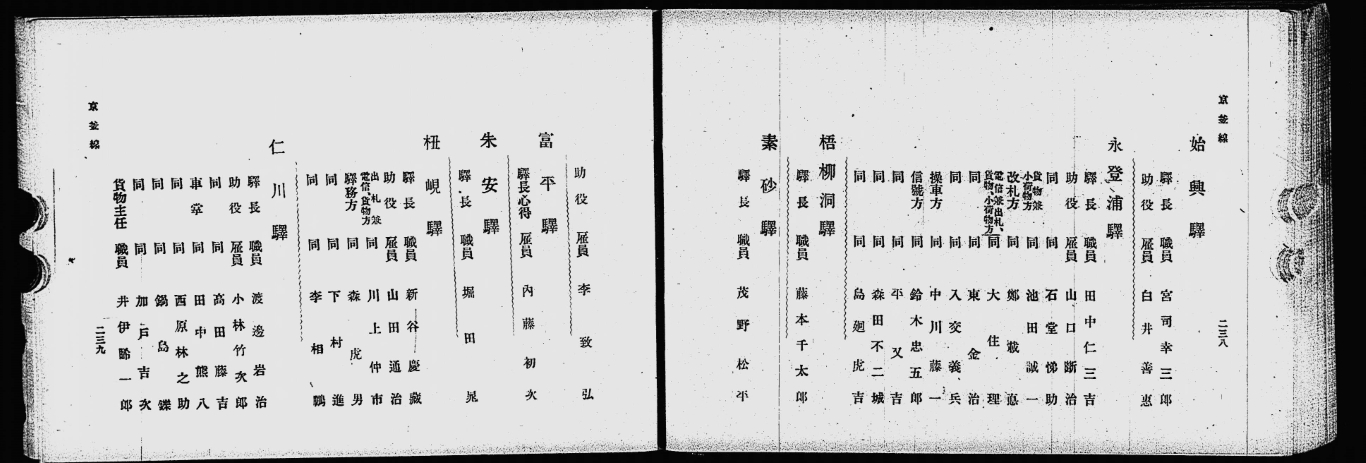 京釜線
始興驛
驛長 職員 宮司幸三郎
助役 雇員 白井善惠
永登浦驛
驛長 職員 田中仁三吉
助役 雇員 山口斷治
同 同 石堂悌助
貨物兼小荷物方 同 池田誠一
改札方 同 鄭載惪
電信兼出札、貨物、小荷物方 同 大住理
同 同 東金治
同 同 入交義兵
操車方 同 中川藤一
信號方 同 鈴木忠五郎
同 同 平又吉
同 同 森田不二城
同 同 島廻虎吉
梧柳洞驛
驛長 職員 藤本千太郎
素砂驛
驛長 職員 茂野松平
二三八
助役 雇員 李致弘
富平驛
驛長心得 雇員 內藤初次
朱安驛
驛長 職員 堀田晃
杻峴驛
驛長 職員 新谷慶藏
助役 雇員 山田通治
出札兼電信、貨物方 同 川上仲市
驛務方 同 森虎男
同 同 下村進
同 同 李相鶴
仁川驛
驛長 職員 渡邊岩治
助役 雇員 小林竹次郎
同 同 高田藤吉
車掌 同 田中熊八
同 同 西原林之助
同 同 鍋島鐵
同 同 加戶吉次
貨物主任 職員 井伊勝一郎
京釜線
二三九